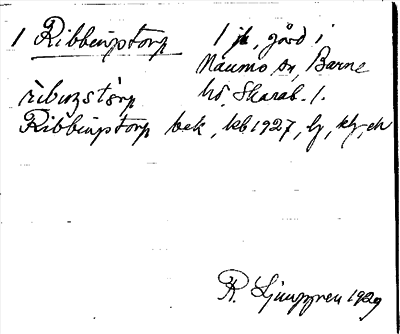 1 Ribbingstorp 1 jb, gård i
Naumo sn, Barne
hd, Skarab. l.
Ribbingstorp bek, kb 1927, lj, kh, ek
R. Ljunggren 1929